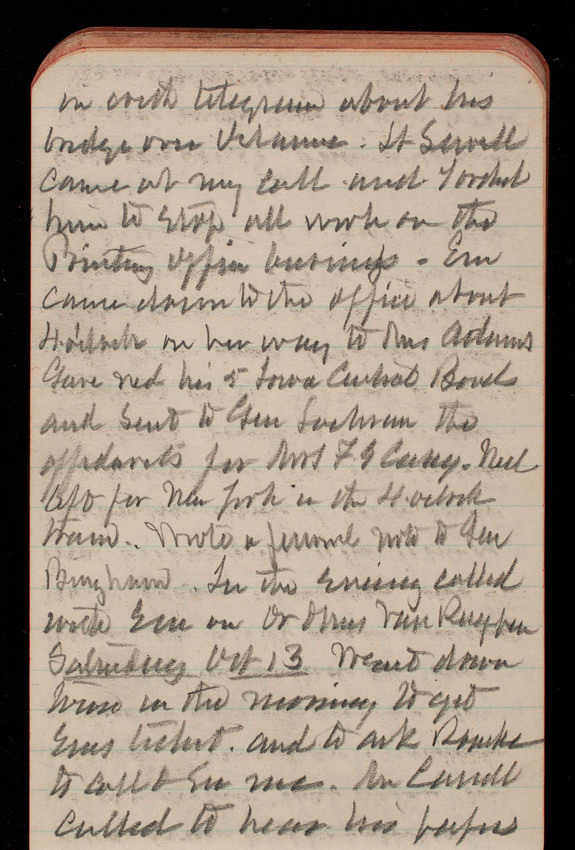 in with telegram about his
bridge over Potomac. Lt Sewell
came at my call and I ordered
him to stop all work on the
Printing office business - Em
came down to the office about
4 o'clock on her way to Mrs Adams
Gave Ned his 5 Iowa Central Bonds
and sent to Gen Cochran the
affidavits for Mrs F G Casey. Ned
left for New York in the 4 o'clock
train. Wrote a personal note to Gen
Bingham. In the evening called
with Em on Dr & Mrs Van Ruypen
Saturday Oct 13 Went down
town in the morning to get
Ems ticket. and to ask Rourke
to call & see me. Mr Carroll
called to hear his papers